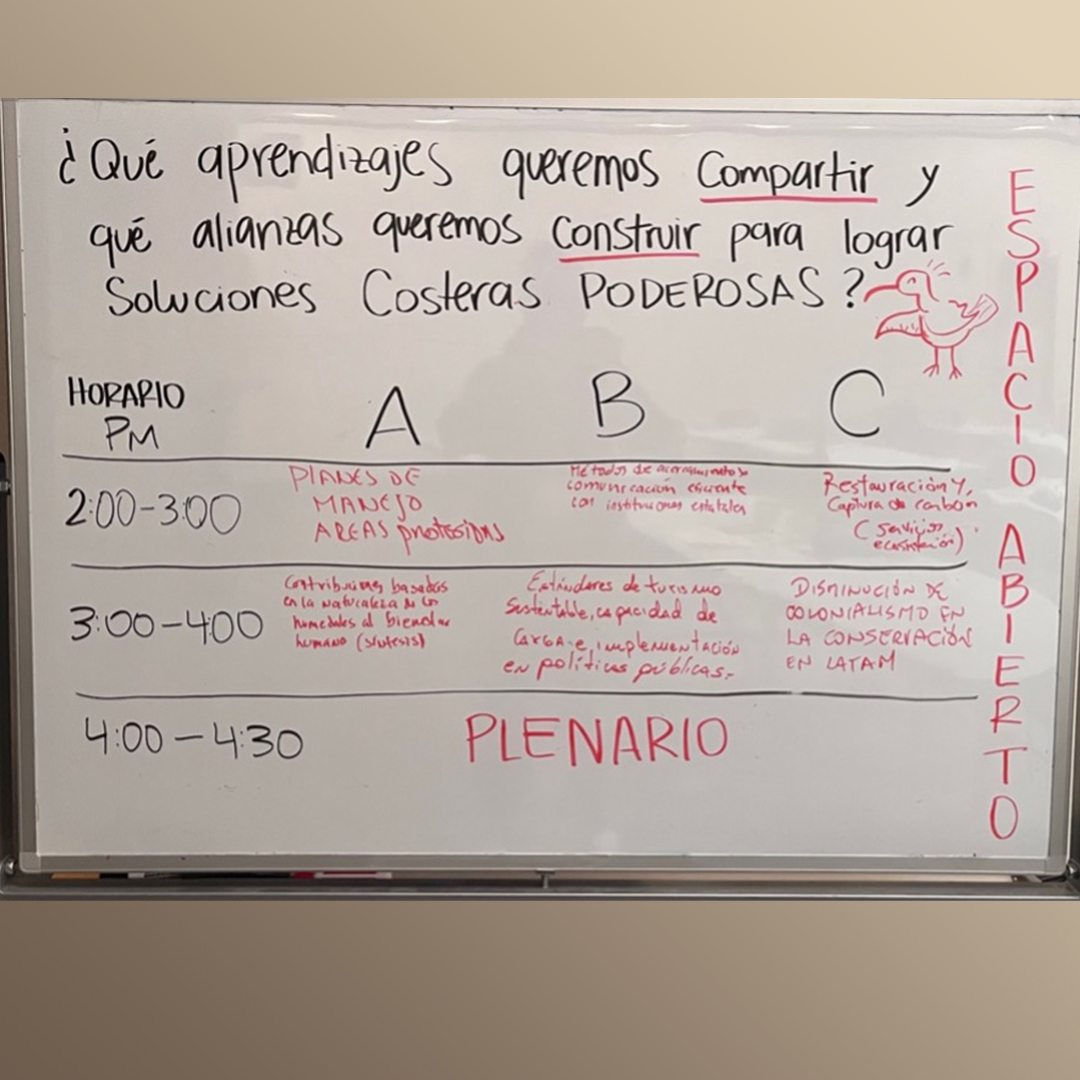 ¿Qué aprendizajes queremos Compartir y
qué alianzas queremos Construir para lograr
Soluciones Costeras PODEROSAS?
HORARIO
PM
A
B
C
2:00-3:00
PLANES DE
MANEJO
AREAS protegidas
Métodos de acercamiento y
comunicación eficiente
con instituciones estatales
Restauración y,
Captura de carbón
(servicios
ecosistémicos)
3:00-4:00
Contribuciones basadas
en la naturaleza de los
humedales al bienestar
humano (síntesis)
Estándares de turismo
Sustentable, capacidad de
carga e implementación
en políticas públicas.-
DISMINUCIÓN DE
COLONIALISMO EN
LA CONSERVACIÓN
EN LATAM
4:00-4:30
PLENARIO
ESPACIO ABIERTO